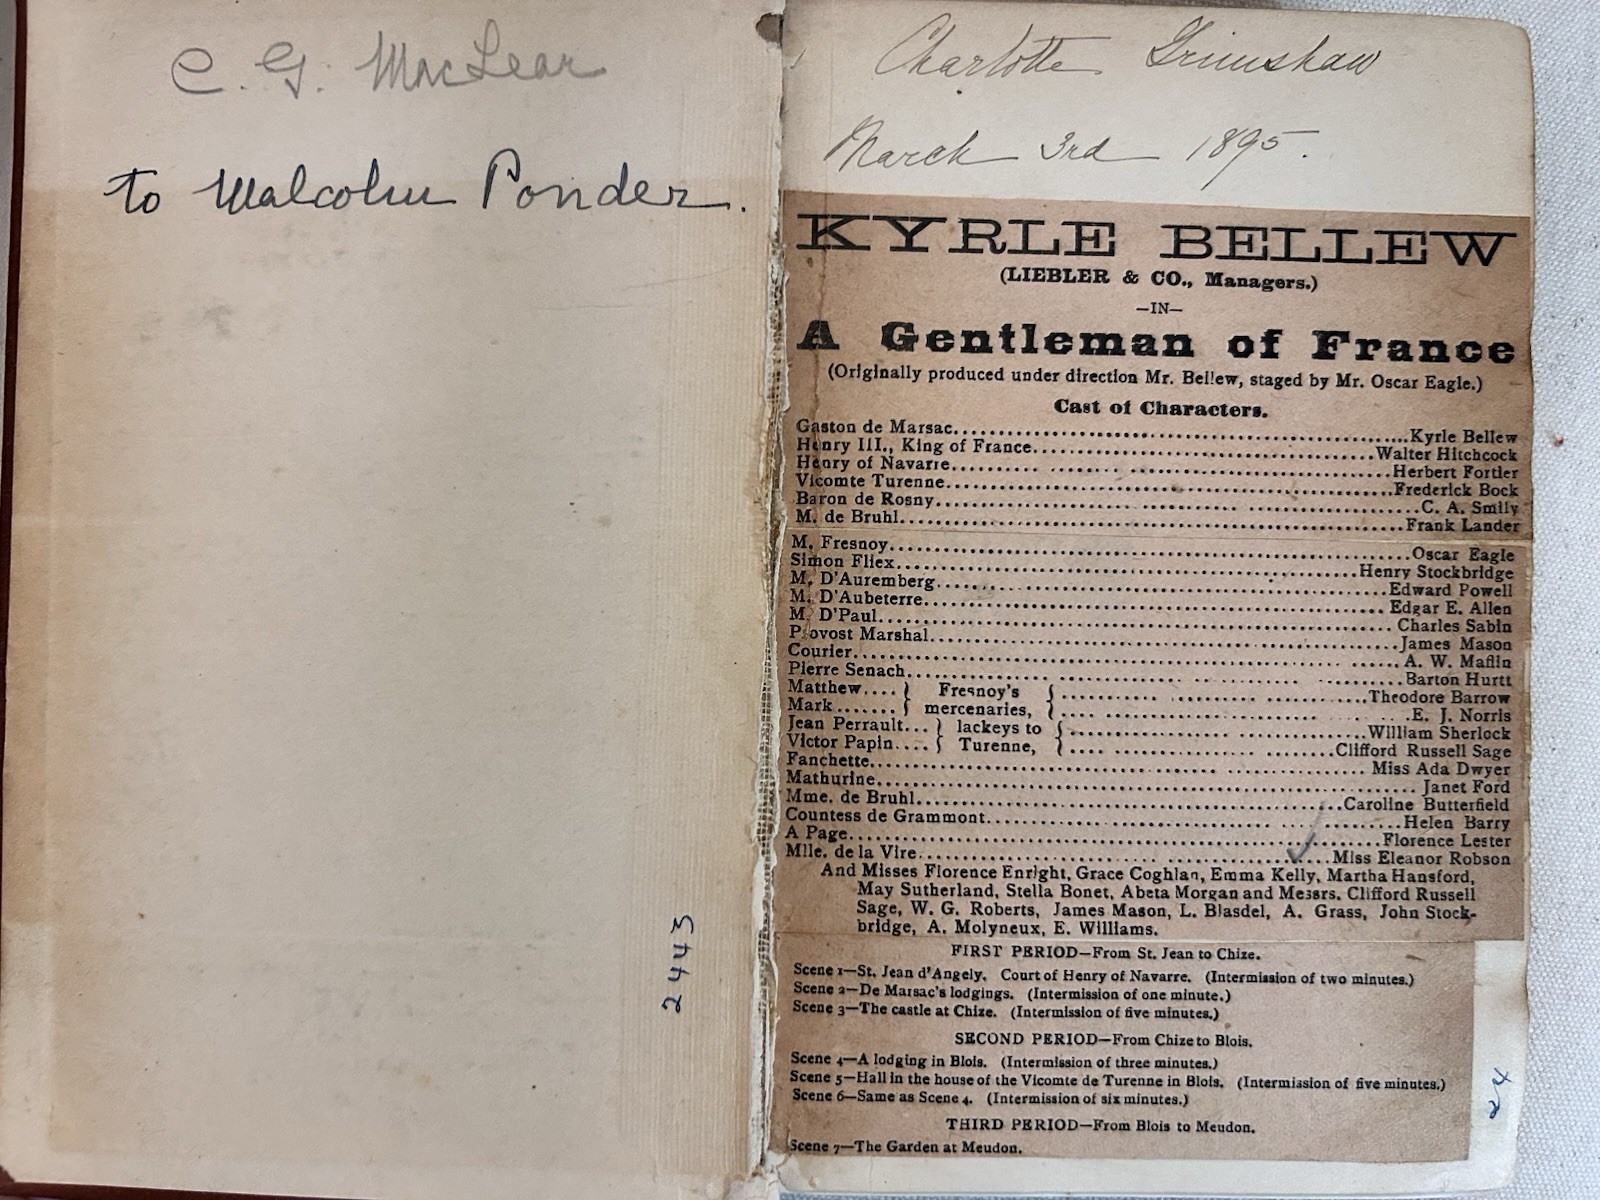 C. G. MacLear
to Malcolm Ponder.
2443
Charlotte Grimshaw
March 3rd 1895.
KYRLE BELLEW
(LIEBLER & CO., Managers.)
—IN—
A Gentleman of France
(Originally produced under direction Mr. Bellew, staged by Mr. Oscar Eagle.)
Cast of Characters.
Gaston de Marsac........Kyrle Bellew
Henry III., King of France........Walter Hitchcock
Henry of Navarre........Herbert Fortier
Vicomte Turenne........Frederick Bock
Baron de Rosny........C. A. Smily
M. de Bruhl........Frank Lander
M. Fresnoy........Oscar Eagle
Simon Fliex........Henry Stockbridge
M. D'Auremberg........Edward Powell
M. D'Aubeterre........Edgar E. Allen
M. D'Paul........Charles Sabin
Provost Marshal........James Mason
Courier........A. W. Maflin
Pierre Senach........Barton Hurtt
Matthew.... } Fresnoy's { ........Theodore Barrow
Mark ....... } mercenaries, { ........E. J. Norris
Jean Perrault... } lackeys to { ........William Sherlock
Victor Papin.... } Turenne, { ........Clifford Russell Sage
Fanchette........Miss Ada Dwyer
Mathurine........Janet Ford
Mme. de Bruhl........Caroline Butterfield
Countess de Grammont........Helen Barry
A Page........Florence Lester
Mlle. de la Vire........Miss Eleanor Robson
And Misses Florence Enright, Grace Coghlan, Emma Kelly, Martha Hansford,
May Sutherland, Stella Bonet, Abeta Morgan and Messrs. Clifford Russell
Sage, W. G. Roberts, James Mason, L. Blasdel, A. Grass, John Stock-
bridge, A. Molyneux, E. Williams.
FIRST PERIOD—From St. Jean to Chize.
Scene 1—St. Jean d'Angely. Court of Henry of Navarre. (Intermission of two minutes.)
Scene 2—De Marsac's lodgings. (Intermission of one minute.)
Scene 3—The castle at Chize. (Intermission of five minutes.)
SECOND PERIOD—From Chize to Blois.
Scene 4—A lodging in Blois. (Intermission of three minutes.)
Scene 5—Hall in the house of the Vicomte de Turenne in Blois. (Intermission of five minutes.)
Scene 6—Same as Scene 4. (Intermission of six minutes.)
THIRD PERIOD—From Blois to Meudon.
Scene 7—The Garden at Meudon.
24